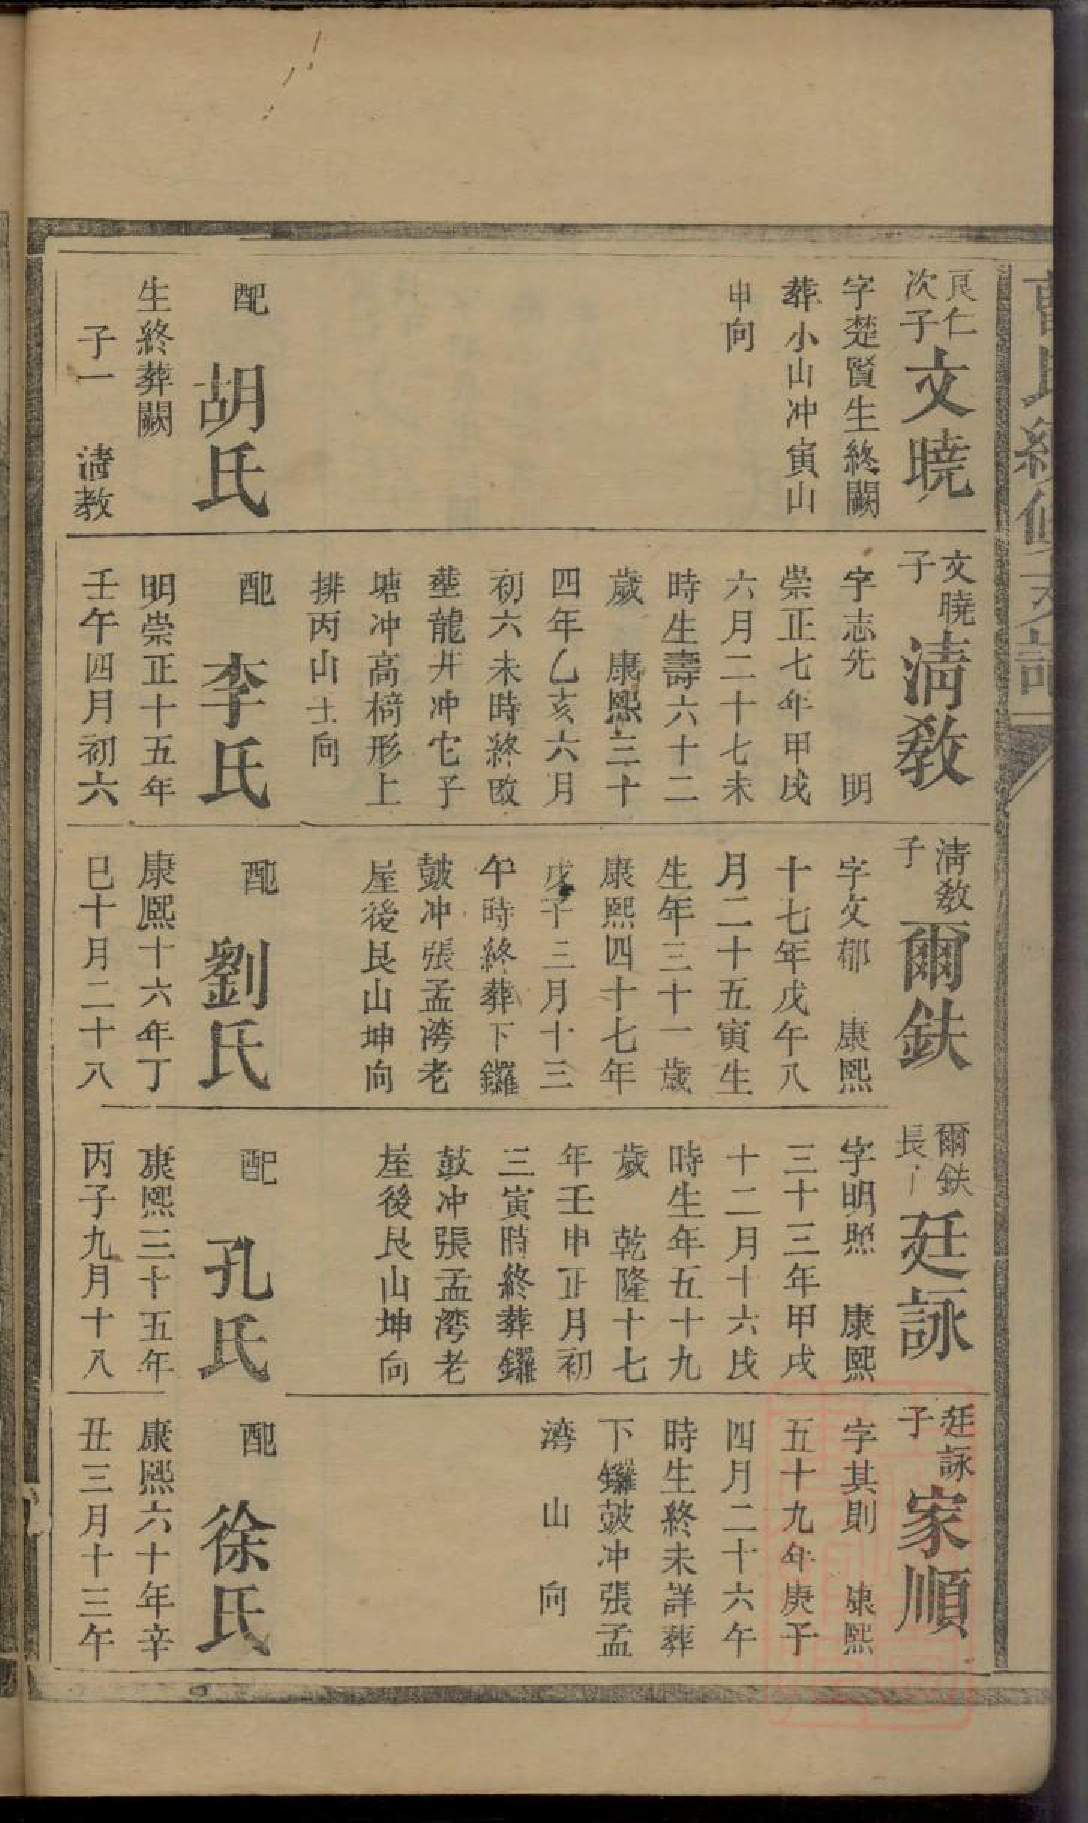 良仁
次子
文曉
字楚賢生終闕
葬小山冲寅山
申向
配
胡氏
生終葬闕
子一 淸教
文曉
子
淸教
字志先 明
崇正七年甲戌
六月二十七未
時生壽六十二
歲 康熙三十
四年乙亥六月
初六未時終改
塟龍井冲屯子
塘冲高椅形上
排丙山壬向
配
李氏
明崇正十五年
壬午四月初六
淸教
子
爾鈇
字文郁 康熙
十七年戊午八
月二十五寅生
生年三十一歲
康熙四十七年
戊子三月十三
午時終葬下鑼
皷冲張孟湾老
屋後艮山坤向
配
劉氏
康熙十六年丁
巳十月二十八
爾鈇
長子
廷詠
字明照 康熙
三十三年甲戌
十二月十六戌
時生年五十九
歲 乾隆十七
年壬申正月初
三寅時終葬鑼
鼓冲張孟湾老
屋後艮山坤向
配
孔氏
康熙三十五年
丙子九月十八
廷詠
子
家順
字其則 康熙
五十九年庚子
四月二十六午
時生終未詳葬
下鑼皷冲張孟
湾 山 向
配
徐氏
康熙六十年辛
丑三月十三午